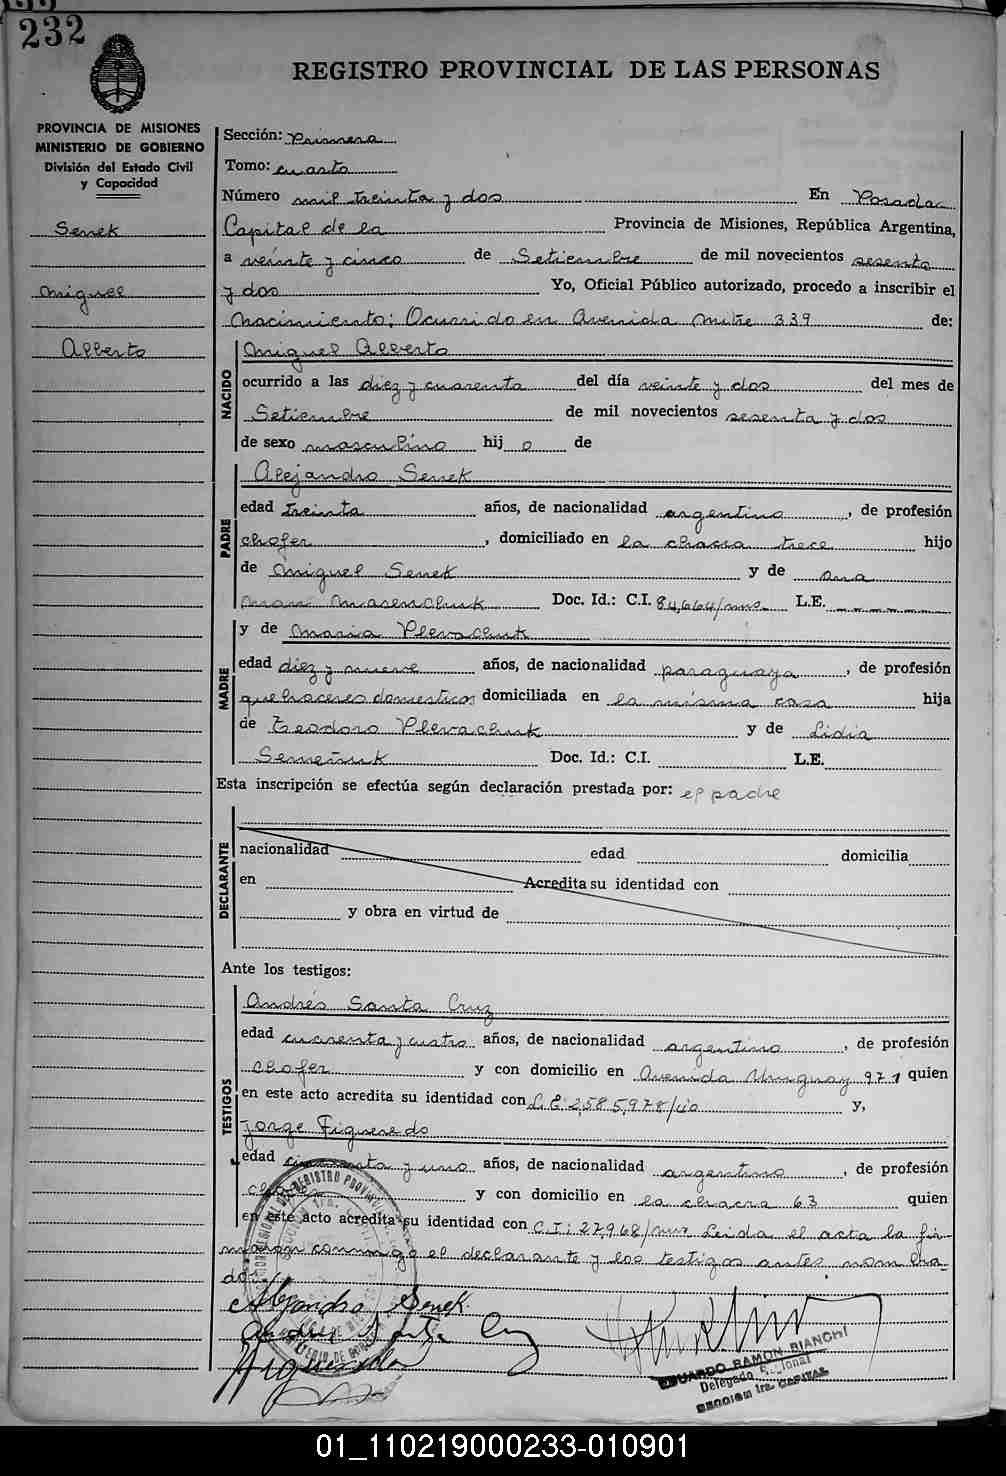 232
REGISTRO PROVINCIAL DE LAS PERSONAS
PROVINCIA DE MISIONES
MINISTERIO DE GOBIERNO
División del Estado Civil
y Capacidad
Senek
Miguel
Alberto
Sección: Primera
Tomo: cuarto
Número mil treinta y dos En Posadas
Capital de la Provincia de Misiones, República Argentina,
a veinte y cinco de Setiembre de mil novecientos sesenta
y dos Yo, Oficial Público autorizado, procedo a inscribir el
Nacimiento: Ocurrido en Avenida Mitre 339 de:
NACIDO
Miguel Alberto
ocurrido a las diez y cuarenta del día veinte y dos del mes de
Setiembre de mil novecientos sesenta y dos
de sexo masculino hij o de
PADRE
Alejandro Senek
edad treinta años, de nacionalidad argentino, de profesión
chofer, domiciliado en la chacra trece hijo
de Miguel Senek y de Ana
Doc. Id.: C.I. 84,664/mnes L.E.
MADRE
y de Maria Plevachuk
edad diez y nueve años, de nacionalidad paraguaya, de profesión
quehaceres domesticos domiciliada en la misma casa hija
de Teodoro Plevachuk y de Lidia
Semeñuk Doc. Id.: C.I. L.E.
Esta inscripción se efectúa según declaración prestada por: el padre
DECLARANTE
nacionalidad edad domicilia
en Acredita su identidad con
y obra en virtud de
Ante los testigos:
TESTIGOS
Andrés Santa Cruz
edad cuarenta y cuatro años, de nacionalidad argentino, de profesión
chofer y con domicilio en Avenida Uruguay 971 quien
en este acto acredita su identidad con L.E: 2585,978/ y,
Jorge Figueredo
edad cincuenta y uno años, de nacionalidad argentino, de profesión
chofer y con domicilio en la chacra 63 quien
en este acto acredita su identidad con C.I: 27,968/mnes Leida el acta la fir-
maron conmigo el declarante y los testigos antes nombra-
dos.
Alejandro Senek
Andres Santa Cruz
JFigueredo
EDUARDO RAMON BIANCHI
Delegado Regional
SECCION 1ra. CAPITAL
01_110219000233-010901